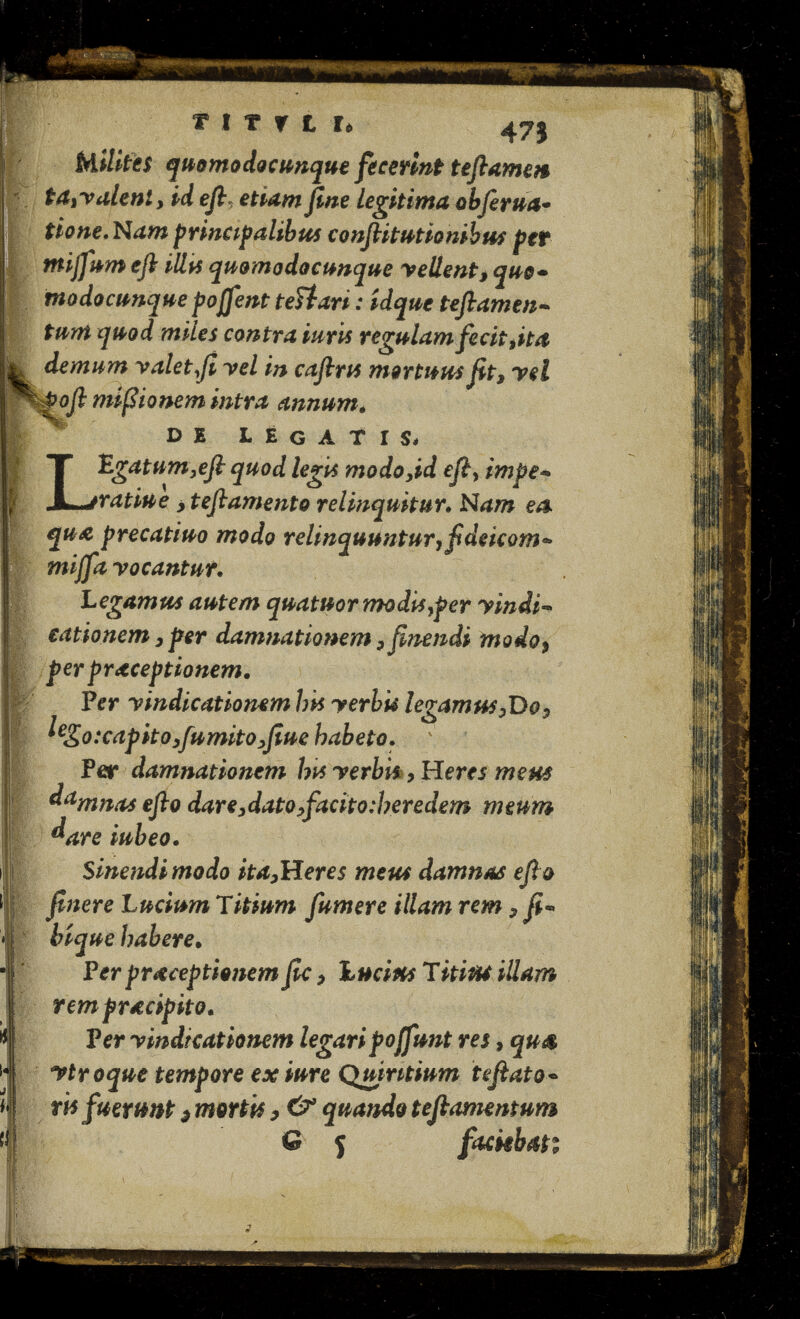 TITVLI. 473
Milites quomodocunque fecerint testamen
ta, valent, id est, etiam sine legitima obserua-
tione. Nam principalibus constitutionibus per
missum est illis quomodocunque vellent, quo-
modocunque possent testari: idque testamen-
tum quod miles contra iuris regulam fecit, ita
demum valet, si vel in castris mortuus sit, vel
post mißionem intra annum.
DE LEGATIS.
LEgatum, est quod legis modo, id est, impe-
ratiue, testamento relinquitur. Nam ea
quæ precatiuo modo relinquuntur, fideicom-
missa vocantur.
Legamus autem quatuor modis, per vindi-
cationem, per damnationem, sinendi modo,
per præceptionem.
Per vindicationem his verbis legamus, Do,
lego: capito, sumito, siue habeto.
Per damnationem his verbis, Heres meus
damnas esto dare, dato, facito: heredem meum
dare iubeo.
Sinendi modo ita, Heres meus damnas esto
sinere Lucium Titium sumere illam rem, si-
bíque habere.
Per præceptionem sic, Lucius Titius illam
rem præcipito.
Per vindicationem legari possunt res, quæ
vtroque tempore ex iure Quiritium testato-
ris fuerunt, mortis, & quando testamentum
G 5 faciebat: